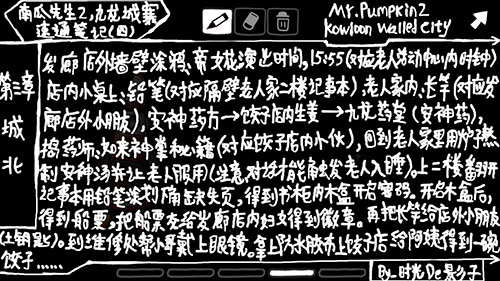 南瓜先生2,九龙城寨
速通笔记(四)
Mr.Pumpkin2
Kowloon Walled City
第三章
城
北
发廊店外墙壁涂鸦、帝女花演出时间。15:55(对应老人劳动中心内时钟)
店内小桌上、铅笔(对应隔壁老人家二楼记事本)老人家内、长竿(对应发
廊店外小朋友),安神药方→饺子店内生姜→九龙药堂(安神药),
捣药师、如来神掌秘籍(对应饺子店内小伙),回到老人家里用炉子熬
制安神汤并让老人服用(注意,对话才能触发老人入睡)。上二楼翻开
记事本用铅笔涂划缺失页,得到书柜内木盒开启密码。开启木盒后,
得到船票。把船票给发廊店内妇女得到徽章。再把长竿给店外小朋友
(土钥匙)。到维修处帮小哥戴上眼镜。拿上防水胶布上饺子店给阿姨得到一碗
饺子......
By_时光De影子